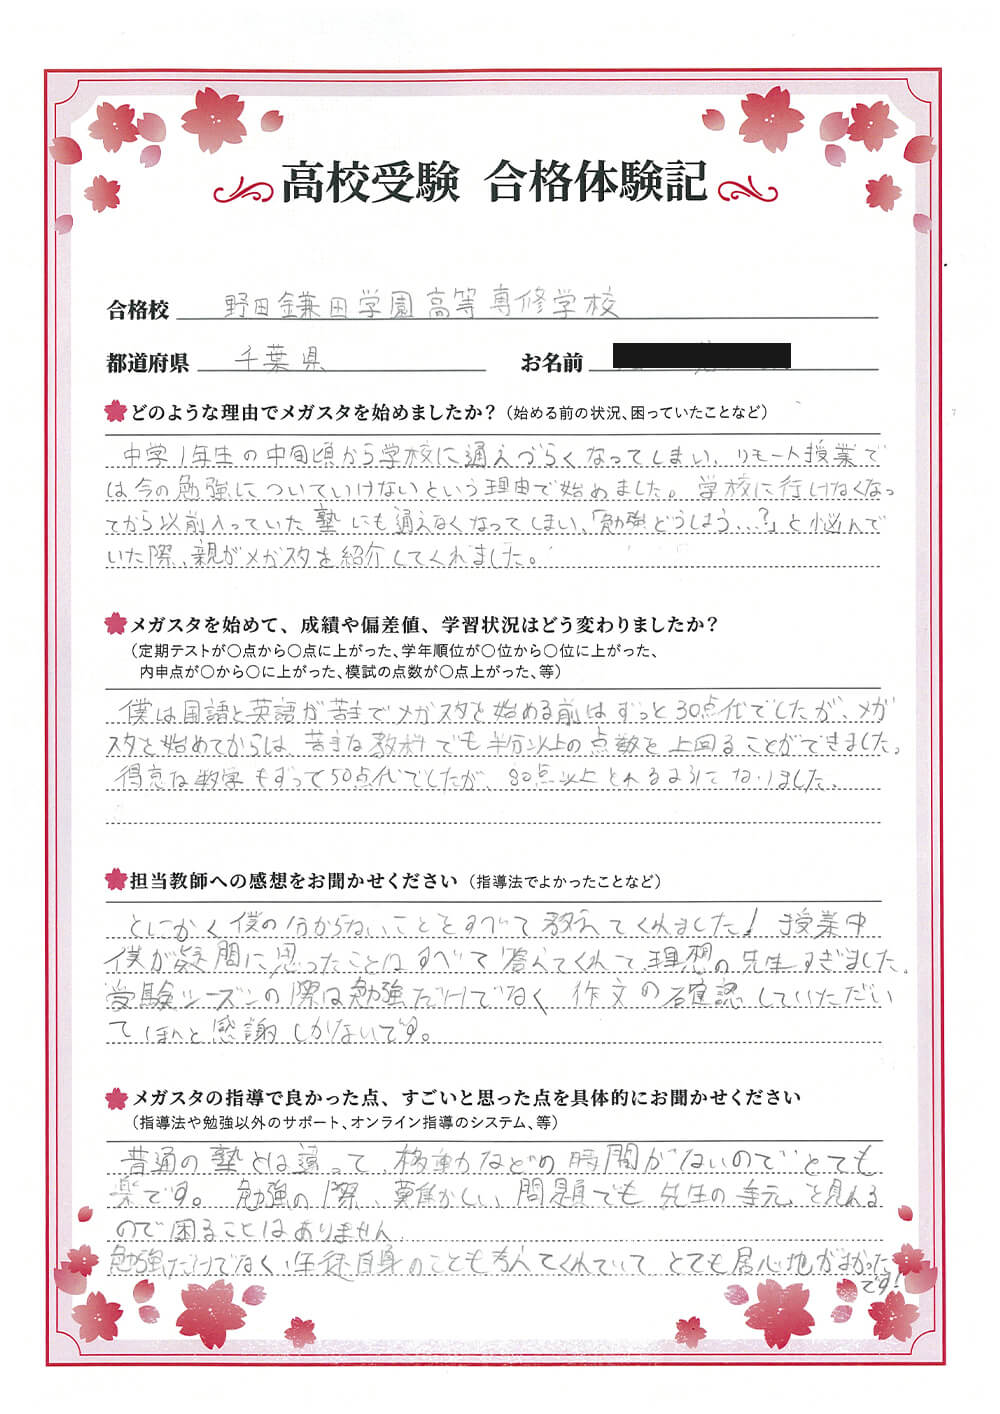 高校受験 合格体験記
合格校 野田鎌田学園高等専修学校
都道府県 千葉県 お名前
どのような理由でメガスタを始めましたか？（始める前の状況、困っていたことなど）
中学1年生の中旬頃から学校に通えづらくなってしまい、リモート授業で
は今の勉強についていけないという理由で始めました。学校に行けなくなっ
てから以前入っていた塾にも通えなくなってしまい、「勉強どうしよう...?」と悩んで
いた際、親がメガスタを紹介してくれました。
メガスタを始めて、成績や偏差値、学習状況はどう変わりましたか？
（定期テストが〇点から〇点に上がった、学年順位が〇位から〇位に上がった、
内申点が〇から〇に上がった、模試の点数が〇点上がった、等）
僕は国語と英語が苦手でメガスタを始める前はずっと30点代でしたが、メガ
スタを始めてからは、苦手な教科でも半分以上の点数を上回ることができました。
得意な数学もずっと50点代でしたが、80点以上とれるようになりました。
担当教師への感想をお聞かせください（指導法でよかったことなど）
とにかく僕の分からないことをすべて教えてくれました！授業中
僕が疑問に思ったことはすべて答えてくれて、理想の先生すぎました。
受験シーズンの際は勉強だけでなく作文の確認していただい
てほんと感謝しかないです。
メガスタの指導で良かった点、すごいと思った点を具体的にお聞かせください
（指導法や勉強以外のサポート、オンライン指導のシステム、等）
普通の塾とは違って、移動などの時間がないのでとても
楽です。勉強の際、難しい問題でも先生の手元を見れる
ので困ることはありません。
勉強だけでなく、生徒自身のことも考えてくれていてとても居心地がよかった
です！